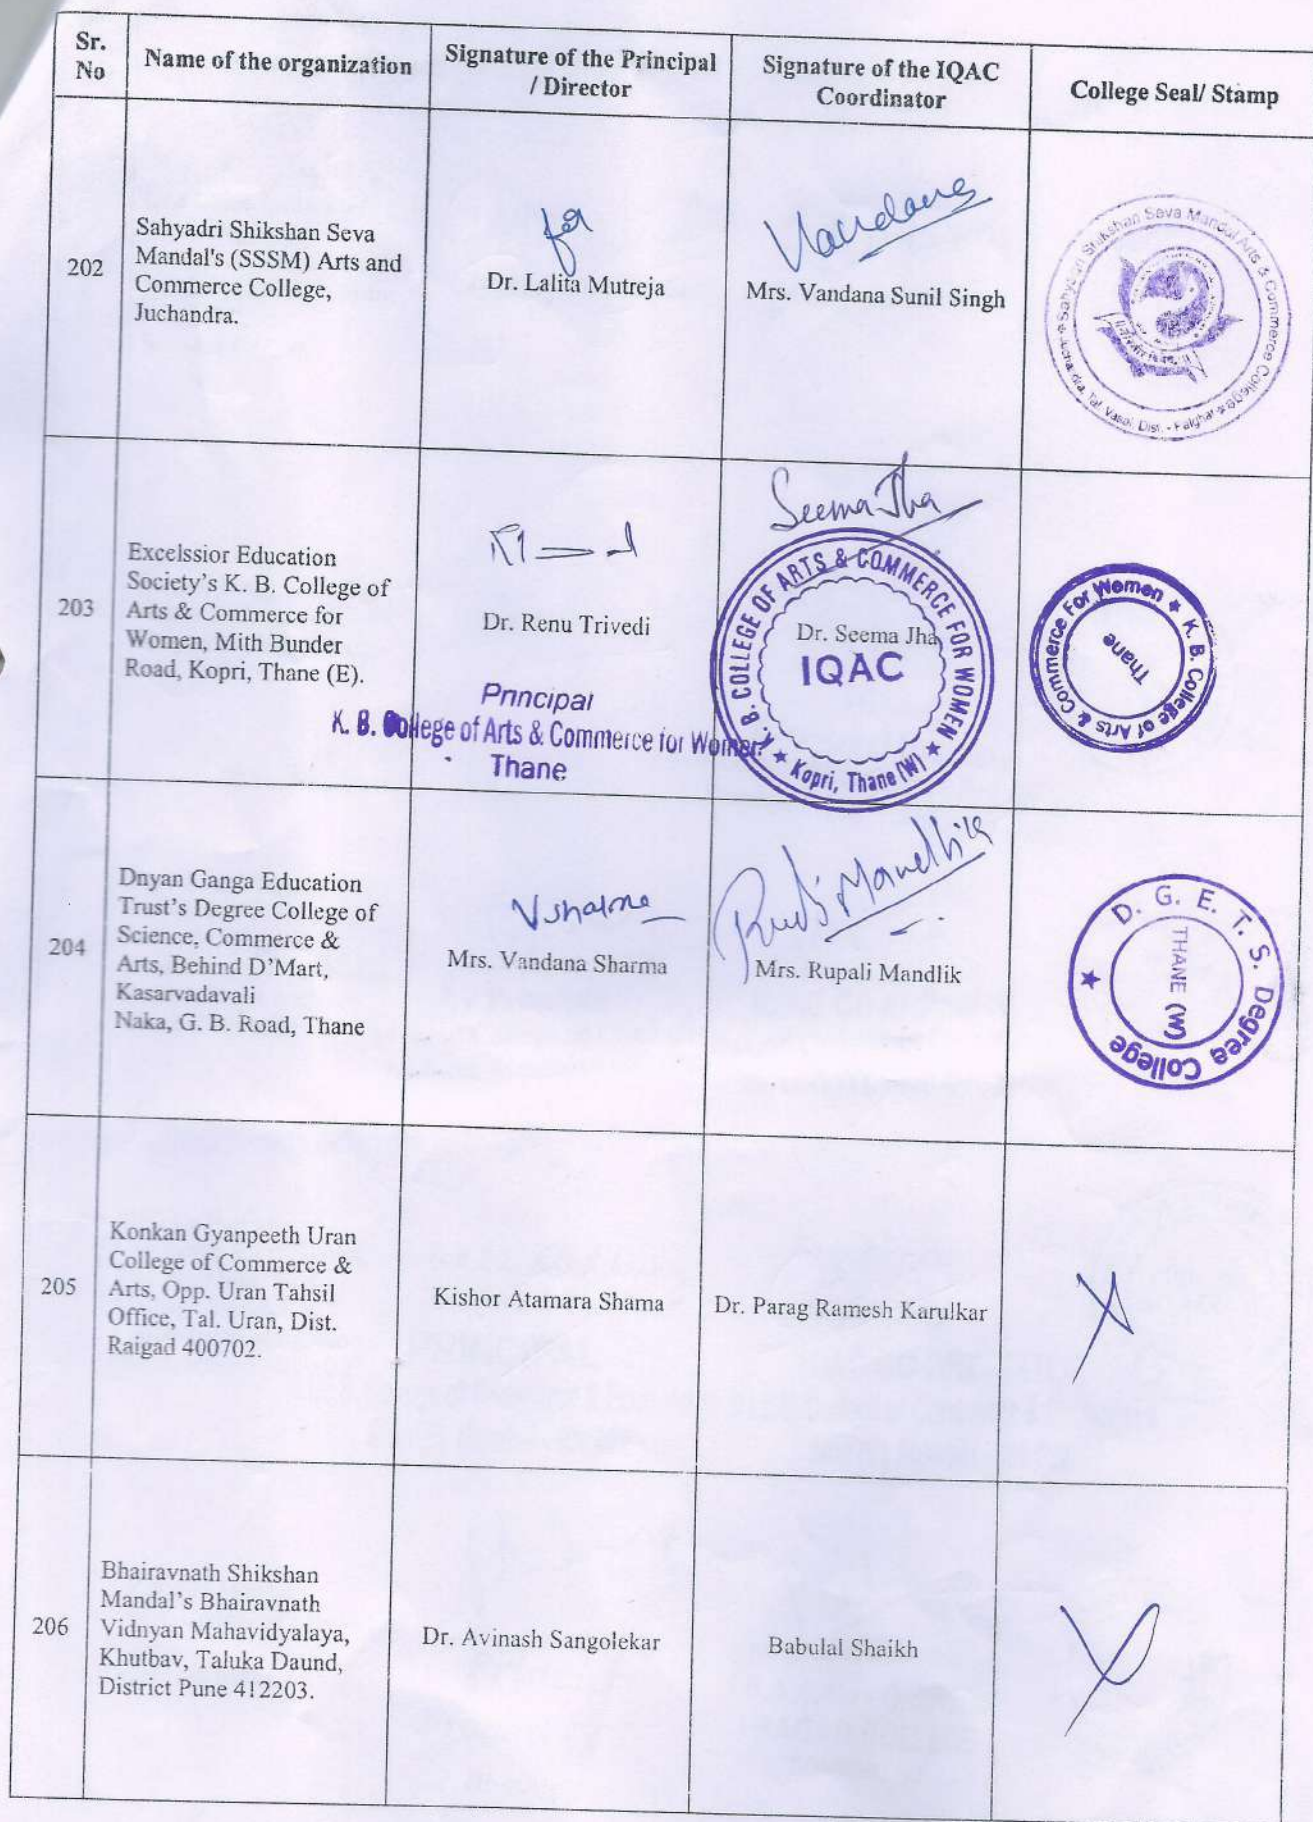 Sr. No
Name of the organization
Signature of the Principal
/ Director
Signature of the IQAC
Coordinator
College Seal/ Stamp
202
Sahyadri Shikshan Seva
Mandal's (SSSM) Arts and
Commerce College,
Juchandra.
for
Dr. Lalita Mutreja
Vandana
Mrs. Vandana Sunil Singh
Sahyadri Shikshan Seva Mandal Arts & Commerce College
Tal. Vasai, Dist. - Palghar
203
Excelssior Education
Society's K. B. College of
Arts & Commerce for
Women, Mith Bunder
Road, Kopri, Thane (E).
Dr. Renu Trivedi
Principal
K. B. College of Arts & Commerce for Women
Thane
Seema Jha
K. B. COLLEGE OF ARTS & COMMERCE FOR WOMEN
Dr. Seema Jha
IQAC
Kopri, Thane (W)
K. B. College of Arts & Commerce For Women
Thane
204
Dnyan Ganga Education
Trust's Degree College of
Science, Commerce &
Arts, Behind D'Mart,
Kasarvadavali
Naka, G. B. Road, Thane
VSharma
Mrs. Vandana Sharma
Mrs. Rupali Mandlik
D. G. E. T. S. Degree College
THANE (W)
205
Konkan Gyanpeeth Uran
College of Commerce &
Arts, Opp. Uran Tahsil
Office, Tal. Uran, Dist.
Raigad 400702.
Kishor Atamara Shama
Dr. Parag Ramesh Karulkar
206
Bhairavnath Shikshan
Mandal's Bhairavnath
Vidnyan Mahavidyalaya,
Khutbav, Taluka Daund,
District Pune 412203.
Dr. Avinash Sangolekar
Babulal Shaikh